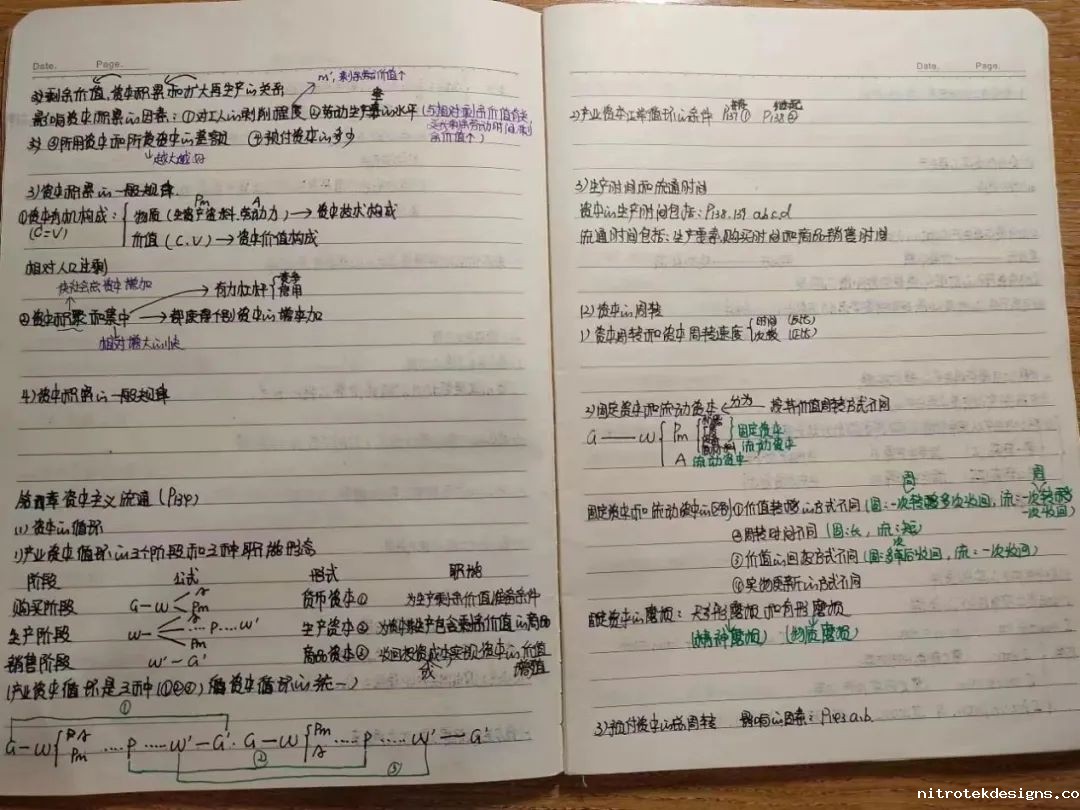 Date. Page.
2)剩余价值,资本积累和扩大再生产的关系
m',剩余价值↑
影响资本积累的因素:①对工人的剥削程度 ②劳动生产率的水平
③所用资本和所费资本的差额 ④预付资本的多少
↓越大越好
3)资本积累的一般规律.
Pm A
①资本有机构成: 物质(生产资料.劳动力)→资本技术构成
(C=V) 价值(C.V)→资本价值构成
相对人口过剩
使社会总资本增加
→有力杠杆 竞争 信用
②资本积累和集中
相对增大的快
4)资本积累的一般规律
第四章 资本主义流通(P134)
(1)资本的循环
1)产业资本循环的3个阶段和三种职能形态
阶段 公式 形式 职能
购买阶段 G—W A Pm 货币资本① 为生产剩余价值准备条件
生产阶段 W— A Pm ...P....W' 生产资本②
销售阶段 W'—G' 商品资本③
(产业资本循环是三种(①②③) 资本循环的统一)
①
G—W Pm ....P.....W'—G'. G—W Pm A .....P.....W'—G'
② ③
Date. Page.
2)产业资本正常循环的条件 P137① P138②
3)生产时间和流通时间
资本的生产时间包括:P138.139 a.b.c.d
流通时间包括:生产要素购买时间和商品销售时间
(2)资本的周转
1)资本周转和资本周转速度 时间(反比) 次数(正比)
2)固定资本和流动资本 分为 按其价值周转方式不同
G—W Pm 固定资本 流动资本
A 流动资本
固定资本和流动资本的区别①价值转移的方式不同(固:一次转移多次收回,流:一次转移一次收回)
②周转时间不同(固:长,流:短)
③价值的回收方式不同
④实物更新的方式不同
固定资本的磨损:无形磨损和有形磨损
(精神磨损) (物质磨损)
3)预付资本的总周转 影响的因素:P143 a.b.
nitrotekdesigns.co